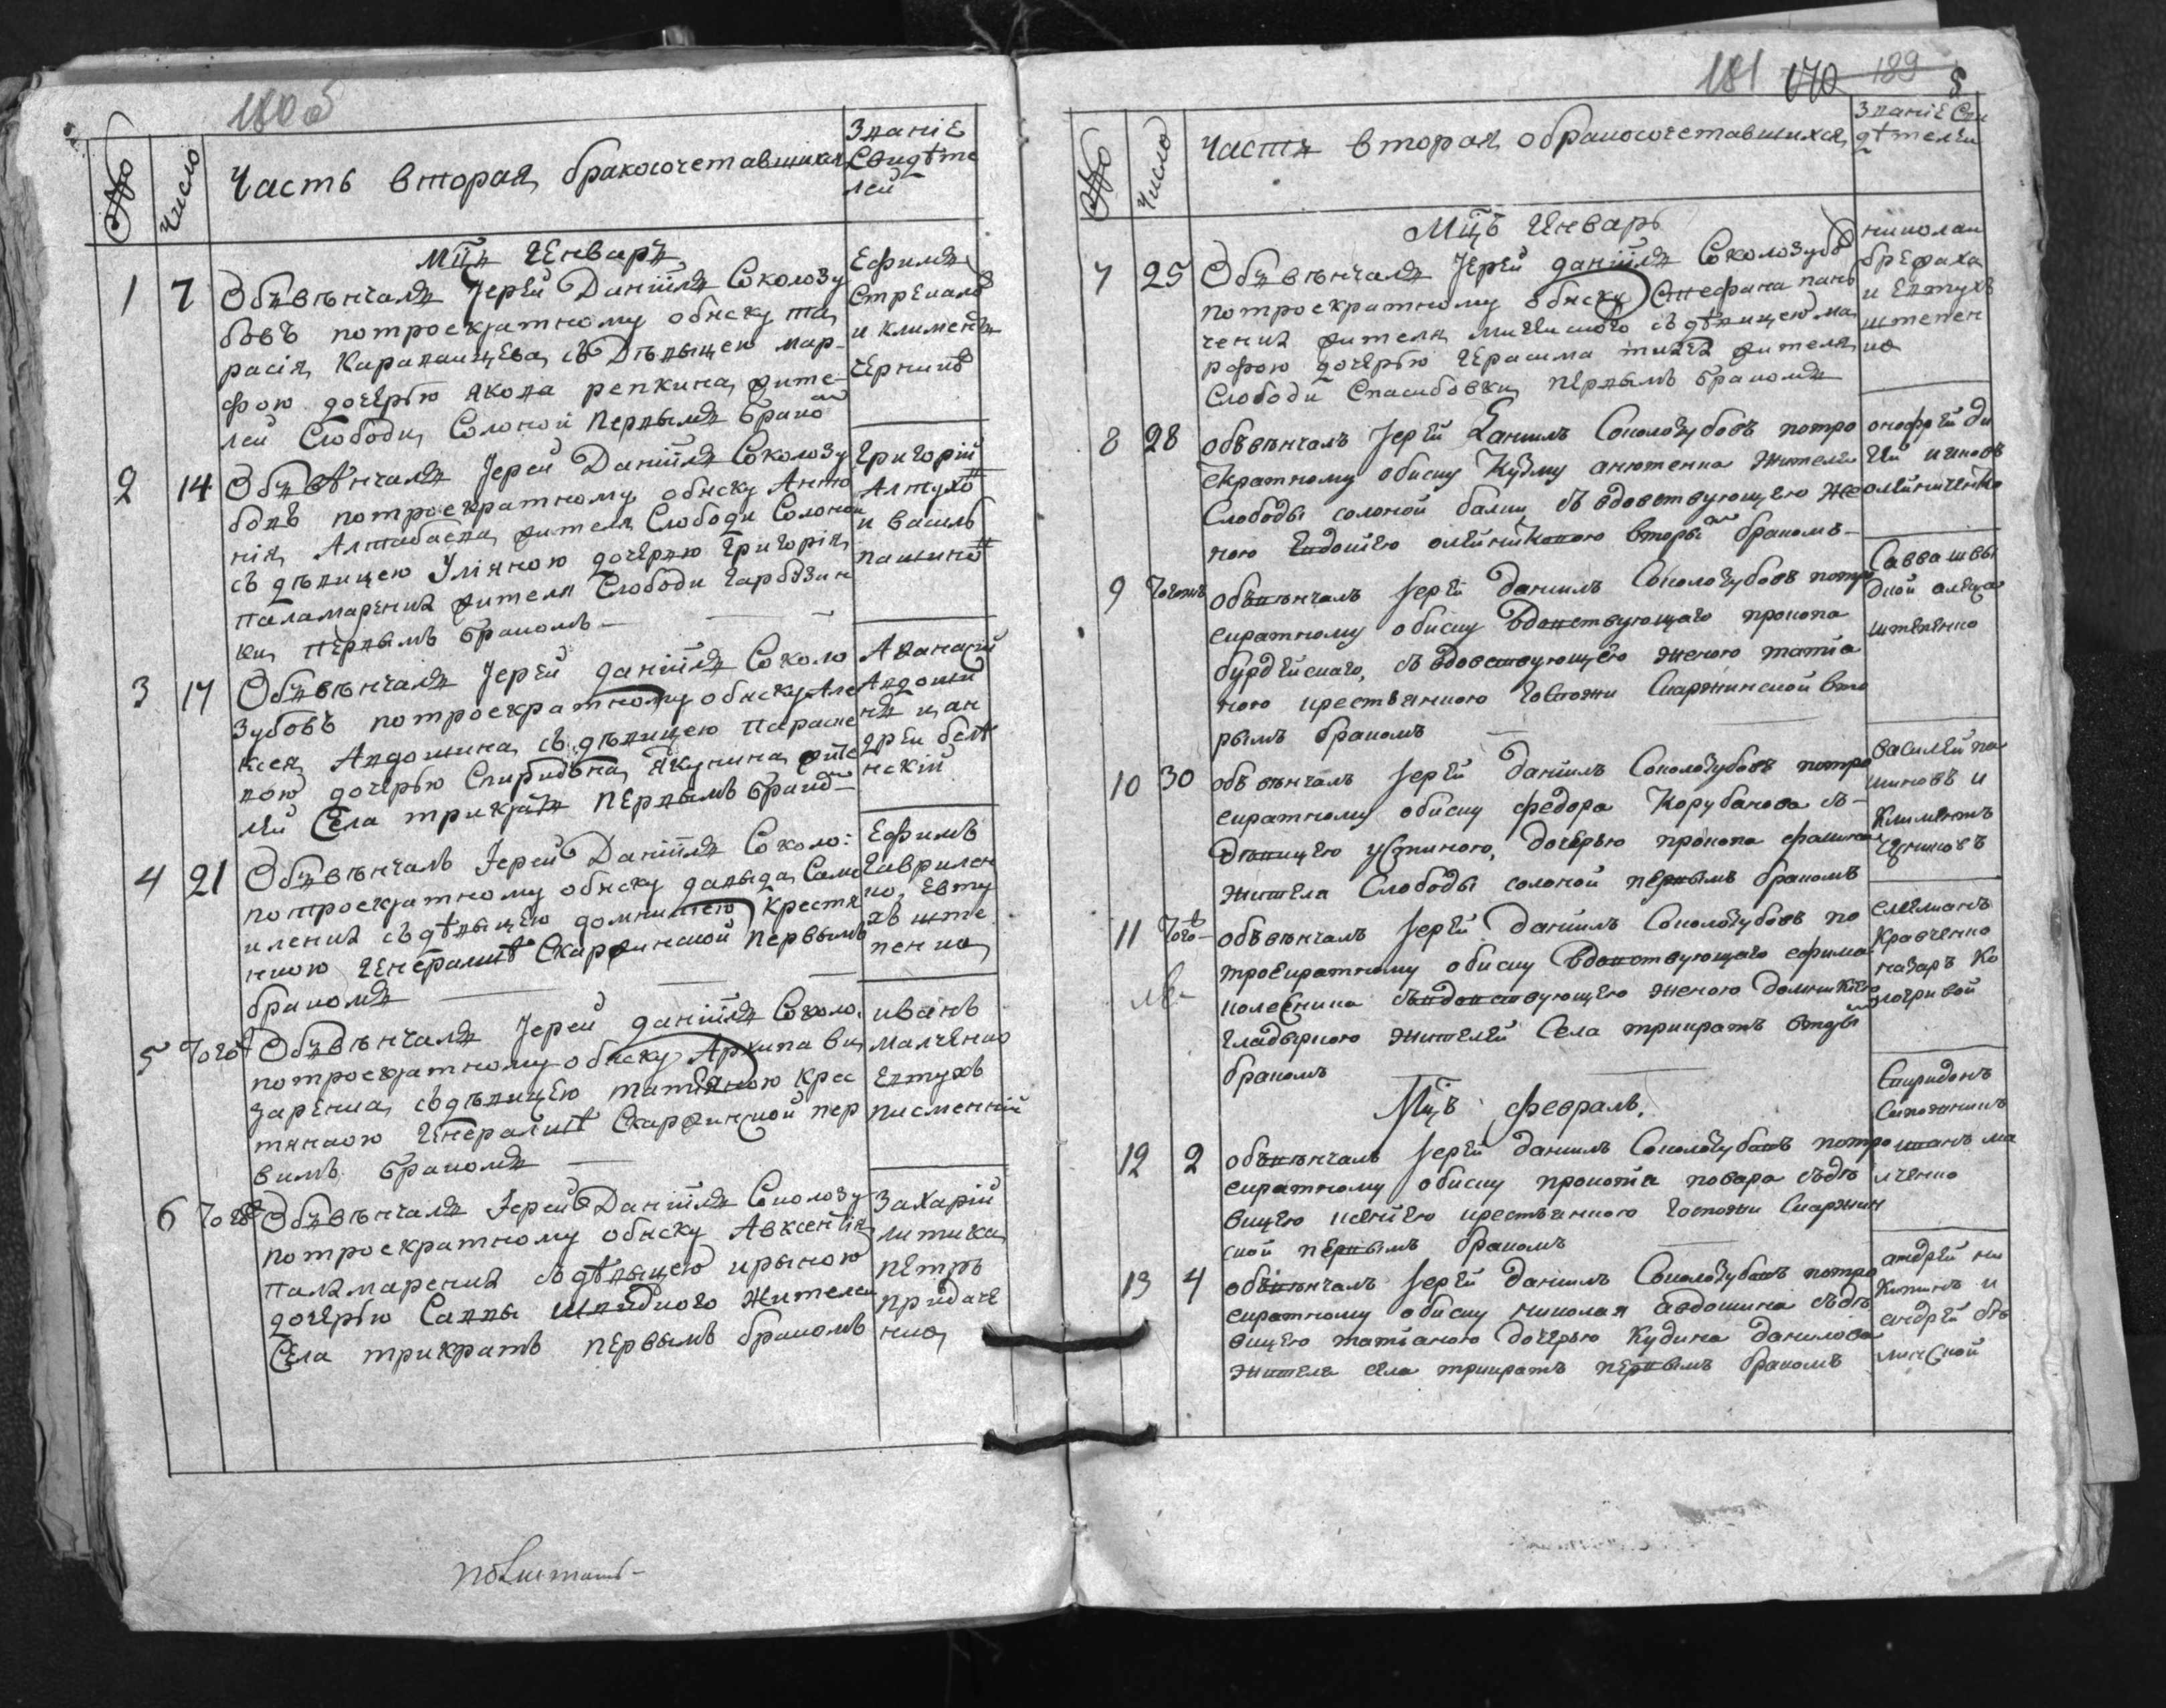 180 б
№
Число
Часть вторая, бракосочетавшихся
Званіе
Свидѣте
лей
Мцъ Генваръ
1 7 Обвѣнчалъ Іерей Даніилъ Соколозу
бовъ потроекратному обиску та
расія, Караваищева, съ Дѣвыцею мар-
фою дочерью якова репкина, жите-
лей Слободи, Солоной первымъ бракō
Ефимъ
Стрекалō
и климентъ
черникō
2 14 Обвѣнчалъ Іерей Даніилъ Соколозу
бовъ потроекратному обиску Анто
нія, Алтабаева, жителя Слободи Солоной
съ дѣвицею Уліяною дочерью григорія,
паламаренка жителя Слободи Гарбузин
ки, первымъ бракомъ-
Григорій
Алтухō
и василь
пашинō
3 17 Обвѣнчалъ Іерей даніилъ Соколо
зубовъ потроекратному обиску Але
ксея, Авдошина, съ дѣвицею параске
вою дочерью Спиридона, якунина, жите
лей Села трикратъ первымъ бракō
Аванасій
Авдоши
нъ и ан
дреи белѣ
нскій
4 21 Обвѣнчалъ Іерей Даніилъ Соколо:
потроекратному обиску давыда, Само
иленка съ дѣвыцею домникиею крестя
нкою Генералшѣ Скаржинской первымъ
бракомъ
Ефимъ
гаврилен
ко, Евту
хъ ште
пенко
5 Тогō Обвѣнчалъ Іерей даніилъ Соколо.
потроекратному обиску Архипа ви,
заренка, съ дѣвицею татіяною крес
тянкою Генералшѣ Скаржинской пер
вимъ бракомъ
иванъ
малченко
Евтухъ
писменній
6 Тогō Обвѣнчалъ Іерей Даніилъ Соколозу
потроекратному обиску Авксентія,
паламаренка съ дѣвыцею ирыною
дочерью Саввы швидкого жителей
Села трикратъ первымъ бракомъ
Захарій
литика,
петръ
придаче
нко,
181 170 189 8
№
Число
Часть вторая, обракосочетавшихся,
Званіе Сви
дѣтелеи
Мцъ Генваръ
7 25 Обвѣнчалъ Іерей даніилъ Соколозубō
потроекратному обиску Стефана пань
ченка жителя, мигиского съ дѣвицею ма
рфою дочерью Герасима ткача жителя,
Слободи Спасибовки, первымъ бракомъ
николаи
брефаха
и Евтухъ
штепен
ко
8 28 объвѣнчалъ Іерей Даніилъ Соколозубовъ потро
екратному обиску Кузму анютенка жителя
Слободы солоной балки съ вдовствующею же
ною Евдокіею олейниковою вторы бракомъ-
онофрей ди
олейниченко
9 Тогожъ объвѣнчалъ Іерей даніилъ Соколозубовъ потро
екратному обиску Вдовствующаго прокопа
бурдейнаго, съ вдовствующею женою татіа
ною крестьянкою Госпожи Скаржинской вто
рымъ бракомъ
Савва швы
дкой
штепенко
10 30 объвѣнчалъ Іерей даніилъ Соколозубовъ потро
екратному обиску федора Корубанова съ-
дѣвицею устиною, дочерью прокопа
жителя Слободы солоной первымъ бракомъ
василей па
шиновъ и
Климентъ
черниковъ
11 Тогō- объвѣнчалъ Іерей даніилъ Соколозубовъ по
троекратному обиску Вдовствующаго ефима
колесника съ вдовствующею женою домникіею
гладыркою жителей Села трикратъ вторы
бракомъ
емелианъ
Кравченко
назаръ ко
логривой
Мцъ февраль.
12 2 объвѣнчалъ Іерей даніилъ Соколозубовъ потро
екратному обиску прокопія повара съдѣ
вицею ксеніею крестьянкою Госпожи Скаржин
ской первымъ бракомъ
Спиридонъ
иванъ ма
лченко
13 4 объвѣнчалъ Іерей даніилъ Соколозубовъ потро
екратному обиску николая авдошина съдѣ
вицею татіаною дочерью Кудина данилова
жителя села трикратъ первымъ бракомъ
андрей ни
Китинъ и
андрей бѣ
линской